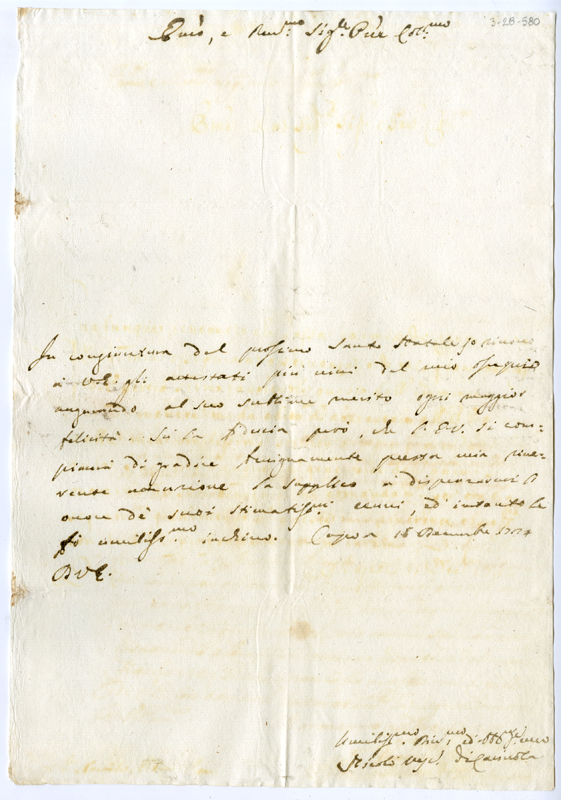 3-28-580
Emo, e Rev.mo Sig.r Pne Col.mo
In congiuntura del prossimo Santo Natale io rinovo
a V.E. gli attestati più vivi del mio ossequio
augurando al suo sublime merito ogni maggior
felicità. Sù la fiducia però, che l'E.V. si com-
piacerà di gradire benignamente questa mia rive-
rente attenzione la supplico a dispensarmi l'
onore de' suoi stimatissmi cenni, ed intanto le
fò umiliss.mo inchino. Capua 15 Decembre
D.V.E.
Umiliss.mo Div.mo ed Obb.mo
di